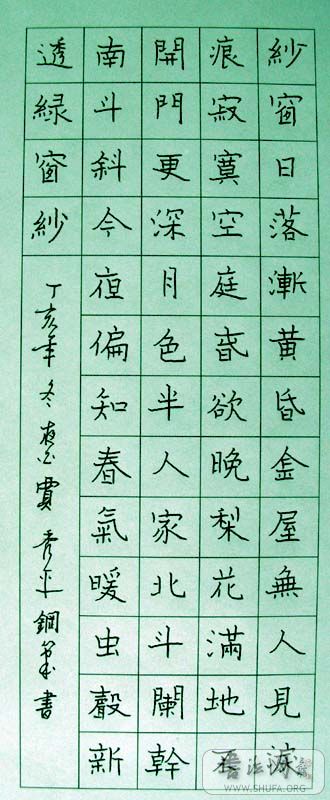 紗窗日落漸黄昏金屋無人見淚
痕寂寞空庭春欲晚梨花滿地不
開門更深月色半人家北斗闌幹
南斗斜今夜偏知春氣暖虫聲新
透緑窗紗
丁亥年冬 鋼筆書
WWW.SHUFA.ORG